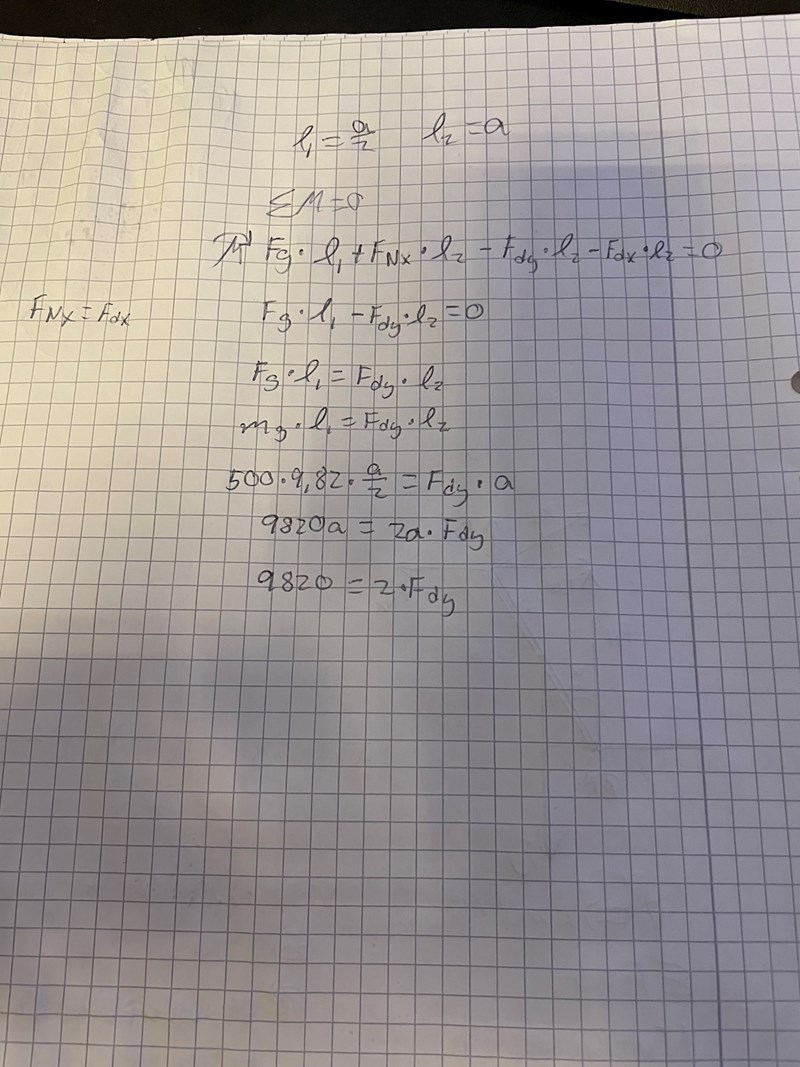 l₁ = a/2   l₂ = a
ΣM=0
Fg · l₁ + F_Nx · l₂ - F_dy · l₂ - F_dx · l₂ = 0
F_Nx = F_dx   Fg · l₁ - F_dy · l₂ = 0
Fg · l₁ = F_dy · l₂
mg · l₁ = F_dy · l₂
500 · 9,82 · a/2 = F_dy · a
9820a = 2a · F_dy
9820 = 2 · F_dy